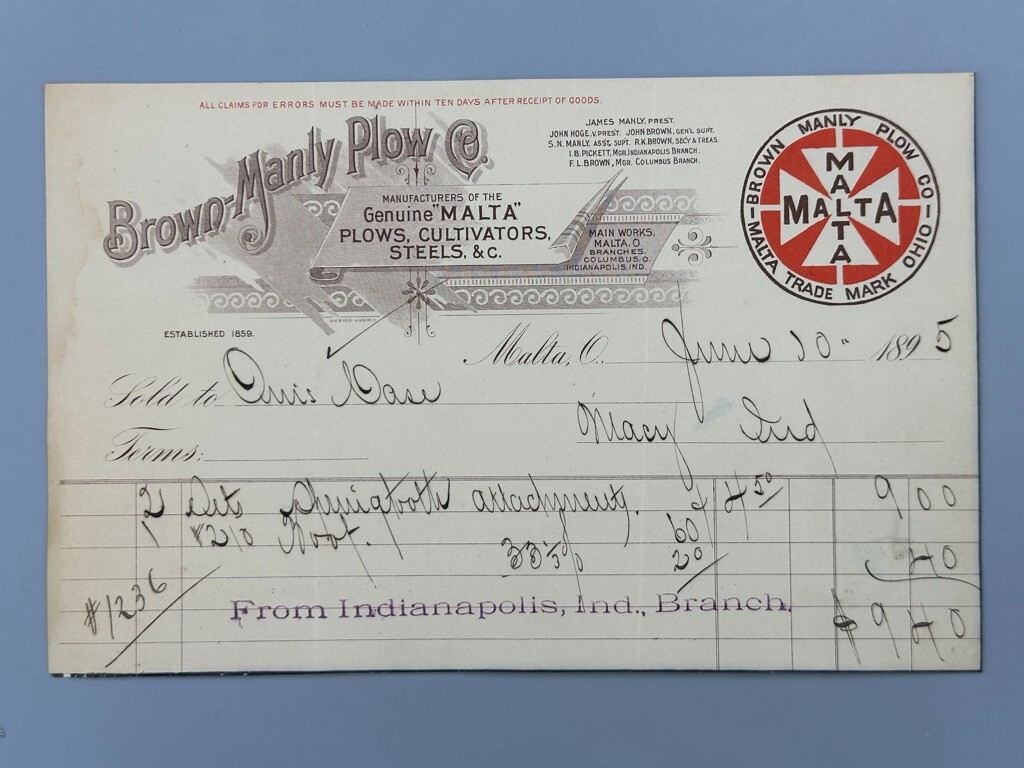 ALL CLAIMS FOR ERRORS MUST BE MADE WITHIN TEN DAYS AFTER RECEIPT OF GOODS.
Brown-Manly Plow Co.
JAMES MANLY, PREST.
JOHN HOGE, V. PREST. JOHN BROWN, GEN'L SUPT.
S. N. MANLY, ASS'T. SUPT. R.K. BROWN, SECY & TREAS.
I. B. PICKETT, MGR. INDIANAPOLIS BRANCH.
F. L. BROWN, MGR. COLUMBUS BRANCH.
MANUFACTURERS OF THE
Genuine "MALTA"
PLOWS, CULTIVATORS,
STEELS, &c.
MAIN WORKS,
MALTA, O.
BRANCHES.
COLUMBUS, O.
INDIANAPOLIS, IND.
BROWN MANLY PLOW CO
MALTA TRADE MARK OHIO
MALTA
MALTA
ESTABLISHED 1859.
Malta, O. June 10" 1895
Sold to Case
Macy Ind
Terms:
2 Sets attachments. 4 50 9 00
1 #210 Foot. 60
33 1/3 % 20 40
#1236
From Indianapolis, Ind., Branch.
$ 9 40